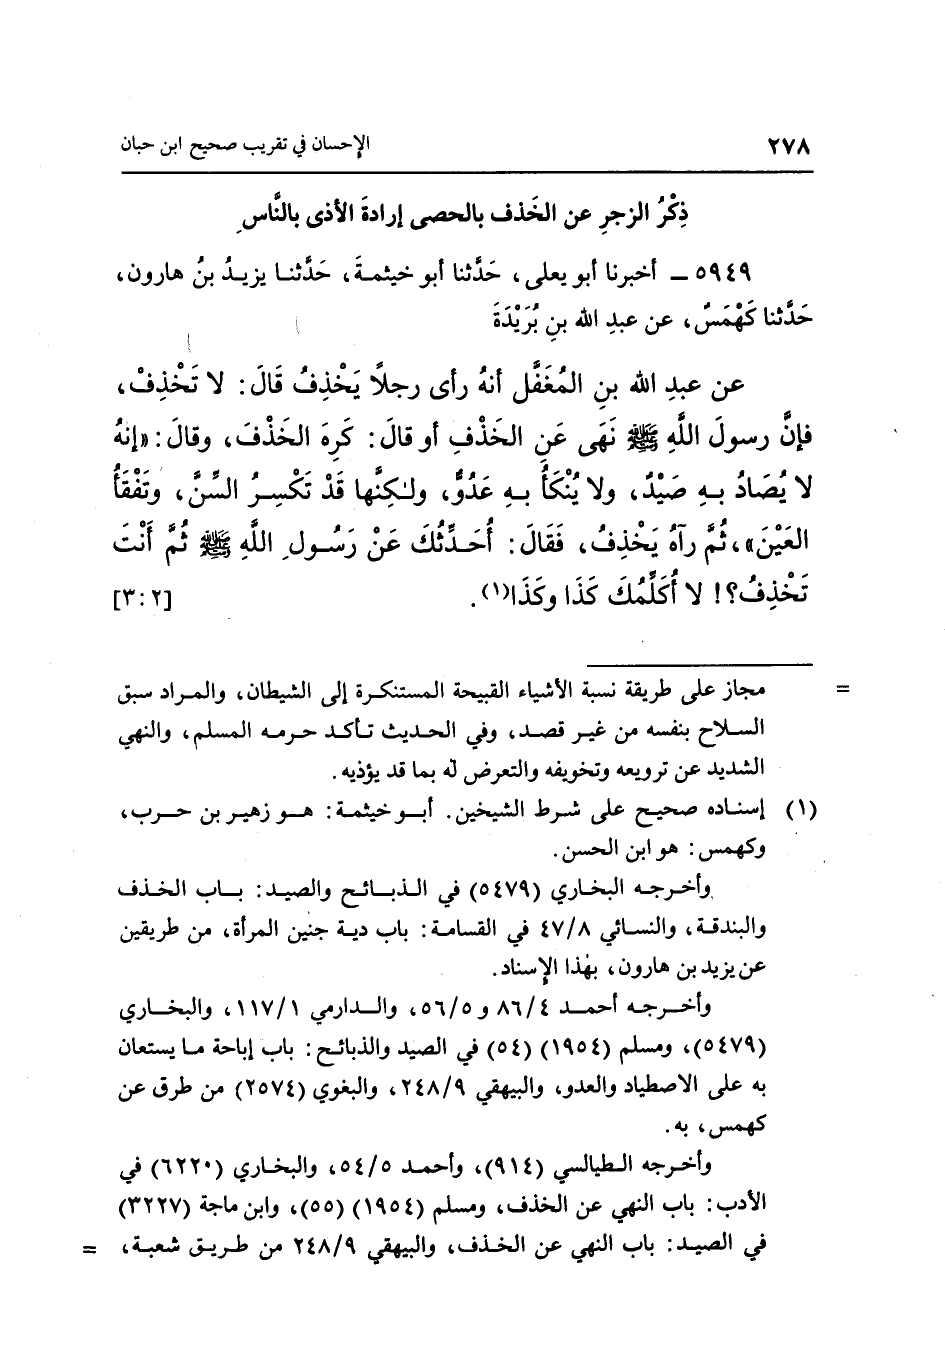 ٢٧٨ الإحسان في تقريب صحيح ابن حبان
ذِكْرُ الزجرِ عن الخَذف بالحصى إرادةَ الأذى بالنَّاسِ
٥٩٤٩ ـ أخبرنا أبو يعلى، حَدَّثنا أبو خيثمةَ، حَدَّثنا يزيدُ بنُ هارون،
حَدَّثنا كَهْمَسٌ، عن عبدِ الله بنِ بُرَيْدَةَ
عن عبدِ الله بنِ المُغَفَّل أنهُ رأى رجلاً يَخْذِفُ قَالَ: لا تَخْذِفْ،
فإنَّ رسولَ اللَّهِ ﷺ نَهَى عَنِ الخَذْفِ أو قالَ: كَرِهَ الخَذْفَ، وقالَ: «إنهُ
لا يُصَادُ بهِ صَيْدٌ، ولا يُنْكَأُ بهِ عَدُوٌّ، ولٰكِنَّها قَدْ تَكْسِرُ السِّنَّ، وتَفْقَأُ
العَيْنَ»، ثُمَّ رآهُ يَخْذِفُ، فَقَالَ: أُحَدِّثُكَ عَنْ رَسُولِ اللَّهِ ﷺ ثُمَّ أَنْتَ
تَخْذِفُ؟! لا أُكَلِّمُكَ كَذَا وكَذَا(١). [٢: ٣]
= مجاز على طريقة نسبة الأشياء القبيحة المستنكرة إلى الشيطان، والمراد سبق
السلاح بنفسه من غير قصد، وفي الحديث تأكد حرمه المسلم، والنهي
الشديد عن ترويعه وتخويفه والتعرض له بما قد يؤذيه.
(١) إسناده صحيح على شرط الشيخين. أبو خيثمة: هو زهير بن حرب،
وكهمس: هو ابن الحسن.
وأخرجه البخاري (٥٤٧٩) في الذبائح والصيد: باب الخذف
والبندقة، والنسائي ٤٧/٨ في القسامة: باب دية جنين المرأة، من طريقين
عن يزيد بن هارون، بهٰذا الإسناد.
وأخرجه أحمد ٨٦/٤ و ٥٦/٥، والدارمي ١١٧/١، والبخاري
(٥٤٧٩)، ومسلم (١٩٥٤) (٥٤) في الصيد والذبائح: باب إباحة ما يستعان
به على الاصطياد والعدو، والبيهقي ٢٤٨/٩، والبغوي (٢٥٧٤) من طرق عن
كهمس، به.
وأخرجه الطيالسي (٩١٤)، وأحمد ٥٤/٥، والبخاري (٦٢٢٠) في
الأدب: باب النهي عن الخذف، ومسلم (١٩٥٤) (٥٥)، وابن ماجة (٣٢٢٧)
في الصيد: باب النهي عن الخذف، والبيهقي ٢٤٨/٩ من طريق شعبة، =